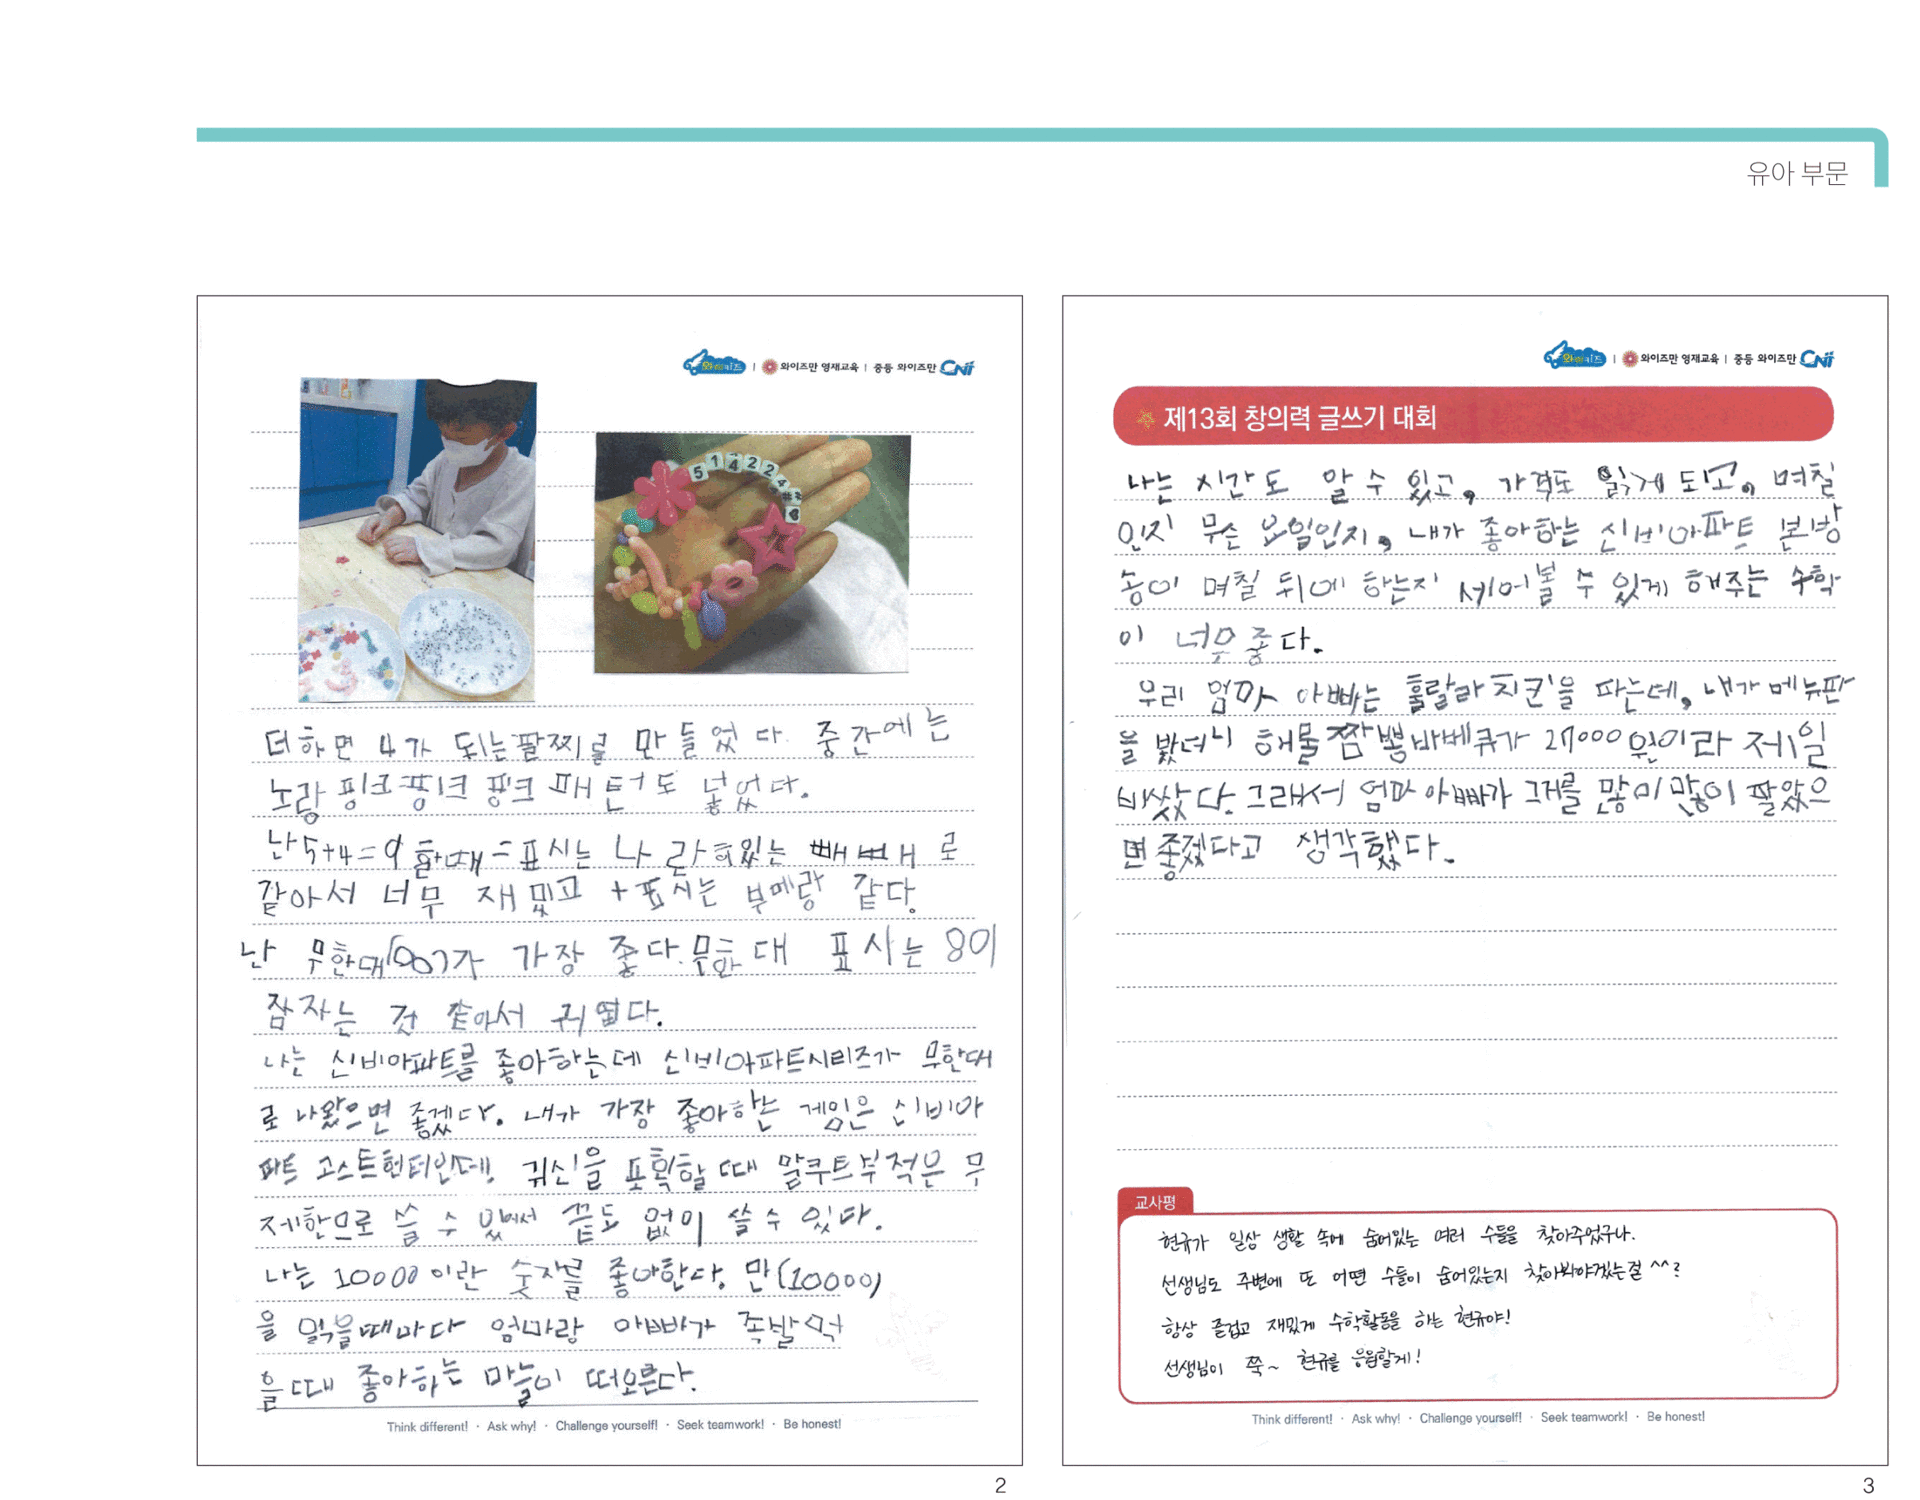 유아 부문
와이키즈 | 와이즈만 영재교육 | 중등 와이즈만 CNi
51422
더하면 4가 되는팔찌를 만들었다. 중간에는
노랑 핑크핑크 핑크 패턴도 넣었다.
난 5+4=9 할때 = 표시는 나란히있는 빼빼로
같아서 너무 재밌고 + 표시는 부메랑 같다.
난 무한대(∞)가 가장 좋다. 무한대 표시는 8이
잠자는 것 같아서 귀엽다.
나는 신비아파트를 좋아하는데 신비아파트시리즈가 무한대
로 나왔으면 좋겠다. 내가 가장 좋아하는 게임은 신비아
파트 고스트헌터인데! 귀신을 포획할 때 말쿠트부적은 무
제한으로 쓸 수 있어서 끝도 없이 쓸 수 있다.
나는 10000이란 숫자를 좋아한다. 만(10000)
을 읽을때마다 엄마랑 아빠가 족발먹
을때 좋아하는 마늘이 떠오른다.
Think different! · Ask why! · Challenge yourself! · Seek teamwork! · Be honest!
2
와이키즈 | 와이즈만 영재교육 | 중등 와이즈만 CNi
제13회 창의력 글쓰기 대회
나는 시간도 알 수 있고, 가격도 읽게 되고, 며칠
인지 무슨 요일인지, 내가 좋아하는 신비아파트 본방
송이 며칠 뒤에 하는지 세어볼 수 있게 해주는 수학
이 너무 좋다.
우리 엄마 아빠는 훌랄라치킨을 파는데, 내가 메뉴판
을 봤더니 해물짬뽕바베큐가 27000원이라 제일
비쌌다. 그래서 엄마 아빠가 그거를 많이 많이 팔았으
면 좋겠다고 생각했다.
교사평
현규가 일상 생활 속에 숨어있는 여러 수들을 찾아주었구나.
선생님도 주변에 또 어떤 수들이 숨어있는지 찾아봐야겠는걸^^?
항상 즐겁고 재밌게 수학활동을 하는 현규야!
선생님이 쭉~ 현규를 응원할게!
Think different! · Ask why! · Challenge yourself! · Seek teamwork! · Be honest!
3